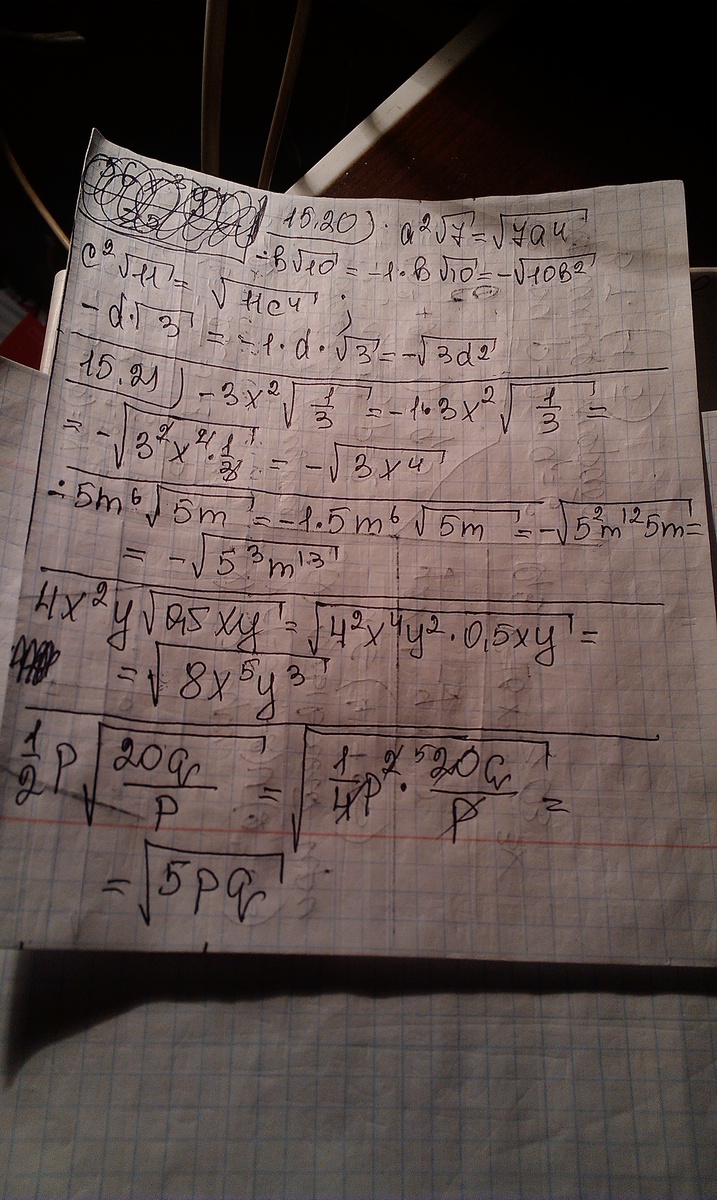 15.20) a²√7 = √7a⁴
c²√11 = √11c⁴ ; -b√10 = -1·b√10 = -√10b²
-d·√3 = -1·d·√3 = -√3d²
15.21) -3x²√1/3 = -1·3x²√1/3 =
= -√3²x⁴·1/3 = -√3x⁴
-5m⁶√5m = -1·5m⁶√5m = -√5²m¹²5m =
= -√5³m¹³
4x²y√0,5xy = √4²x⁴y²·0,5xy =
= √8x⁵y³
1/2 p√20q/p = √1/4 p²·⁵20q/p =
= √5pq